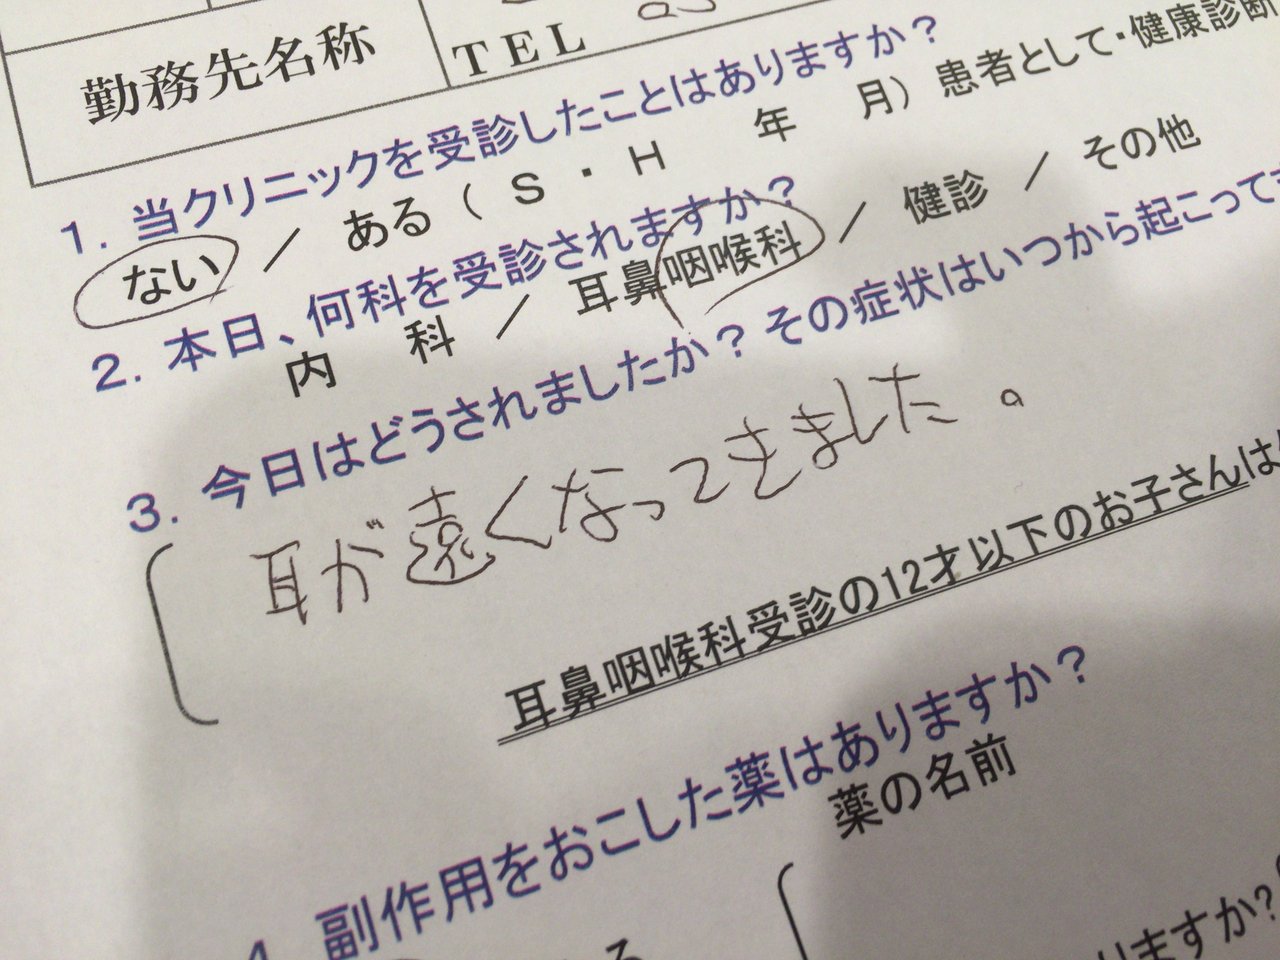 勤務先名称
TEL
1. 当クリニックを受診したことはありますか？
ない / ある ( S ・ H 年 月) 患者として・健康診断
2. 本日、何科を受診されますか？
内 科 / 耳鼻咽喉科 / 健診 / その他
3. 今日はどうされましたか？その症状はいつから起こって
耳が遠くなってきました。
耳鼻咽喉科受診の12才以下のお子さんは
4. 副作用をおこした薬はありますか？
薬の名前
りますか？